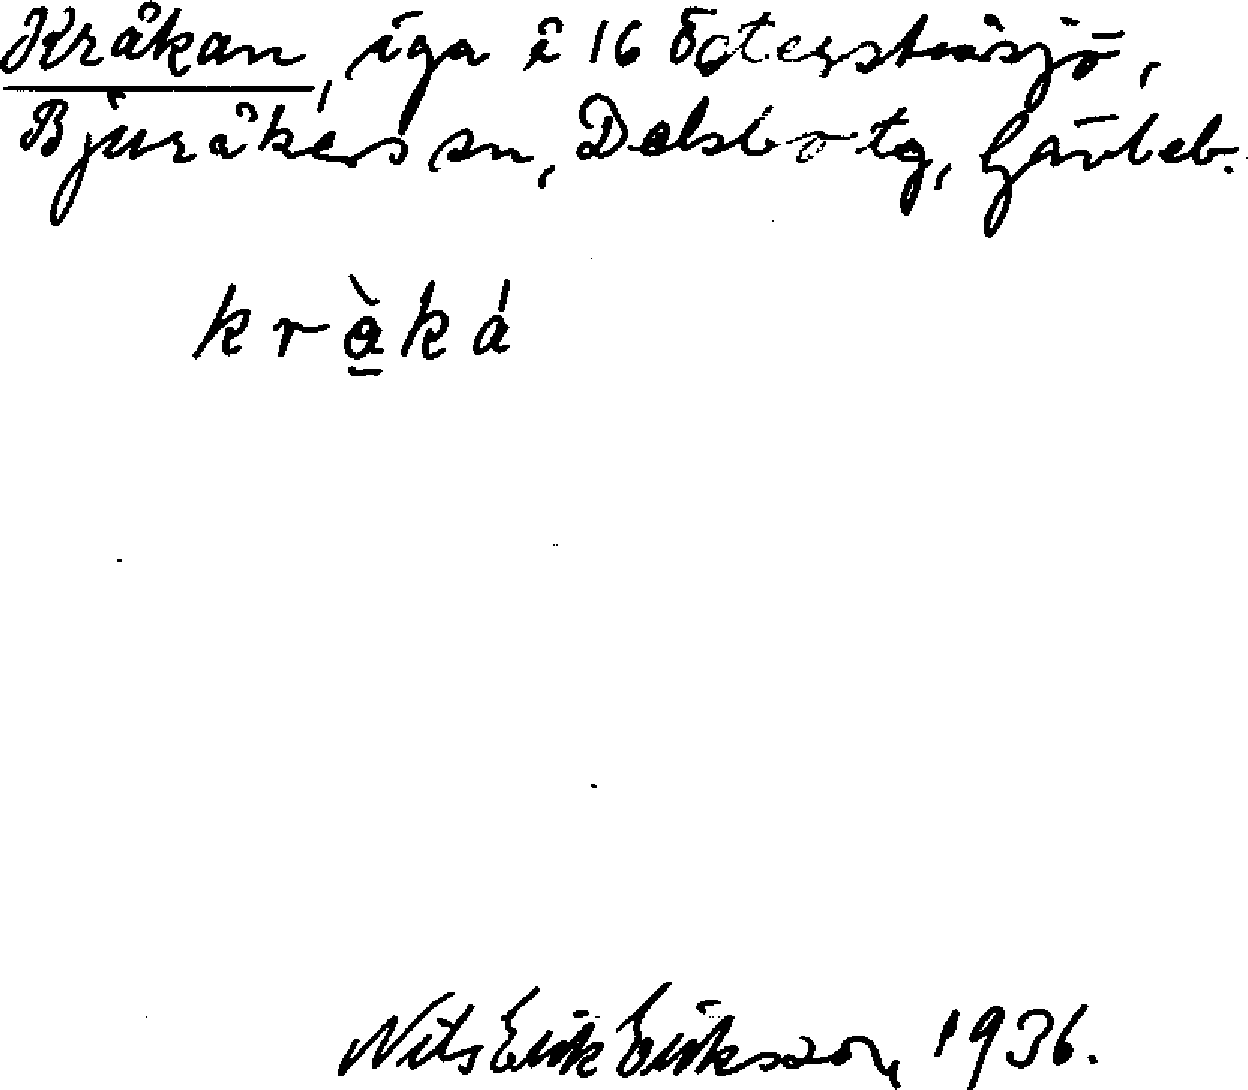 Kråkan, äga i 16 Östersträsjö,
Bjuråkers sn, Delsbo tg, Gävleb.
kràká
Nils Erik Eriksson, 1936.